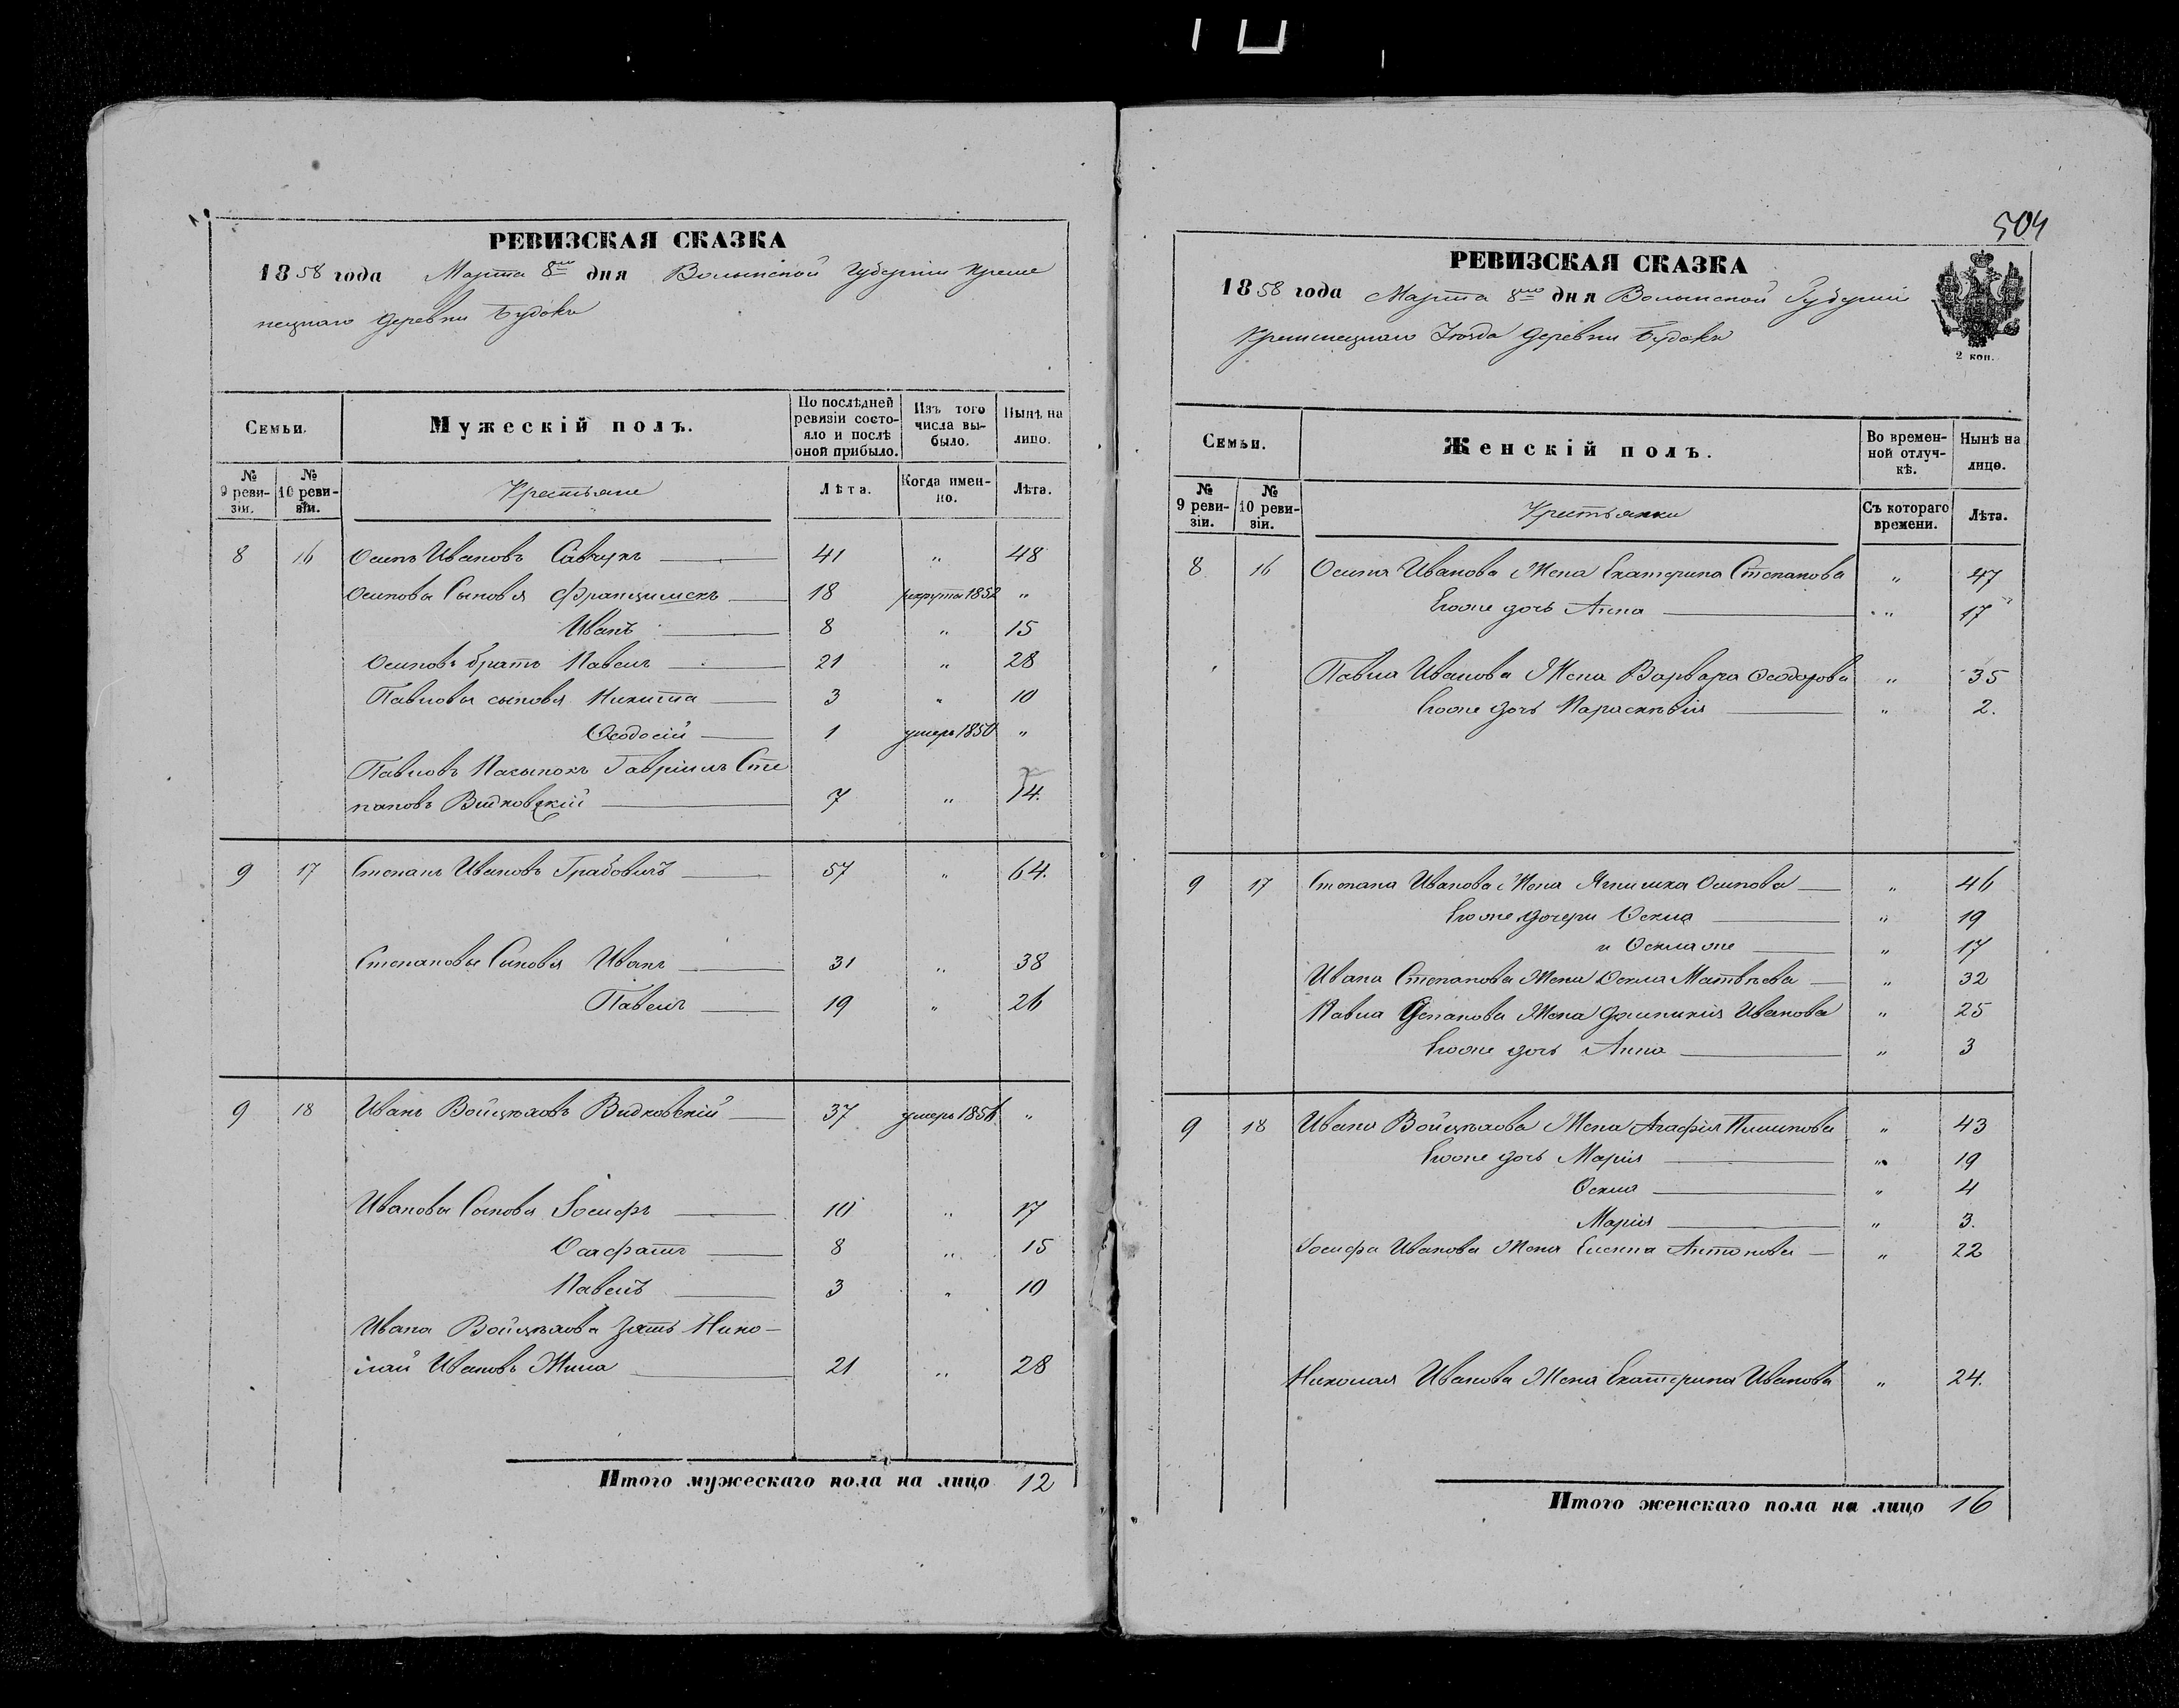 РЕВИЗСКАЯ СКАЗКА
1858 года Марта 8го дня Волынской Губерніи Креме
нецкаго деревни Будокъ
Семьи.
Мужескій полъ.
По послѣдней ревизіи состояло и послѣ оной прибыло.
Изъ того числа выбыло.
Нынѣ на лицо.
№ 9 ревизіи.
№ 10 ревизіи.
Крестьяне
Лѣта.
Когда именно.
Лѣта.
8 16 Осипъ Ивановъ Савчукъ 41 " 48
Осиповы Сыновья Францишекъ 18 рекрутъ 1852 "
Иванъ 8 " 15
Осиповъ братъ Павелъ 21 " 28
Павловы сыновья Никита 3 " 10
Ѳеодосій 1 умеръ 1850 "
Павловъ Пасынокъ Гавріилъ Сте
пановъ Видковскій 7 " 14.
9 17 Степанъ Ивановъ Грабовичъ 57 " 64.
Степановы Сыновья Иванъ 31 " 38
Павелъ 19 " 26
9 18 Иванъ Войцѣховъ Видковскій 37 умеръ 1856 "
Ивановы Сыновья Іосифъ 10 " 17
Осафатъ 8 " 15
Павелъ 3 " 10
Ивана Войцѣхова Зять Нико-
лай Ивановъ Жила 21 " 28
Итого мужескаго пола на лицо 12
504
РЕВИЗСКАЯ СКАЗКА
1858 года Марта 8го дня Волынской Губерніи
Кременецкаго Уѣзда деревни Будокъ
2 коп.
Семьи.
Женскій полъ.
Во временной отлучкѣ.
Нынѣ на лицо.
№ 9 ревизіи.
№ 10 ревизіи.
Крестьянки
Съ котораго времени.
Лѣта.
8 16 Осипа Иванова Жена Екатерина Степанова " 47
Егоже дочь Анна " 17
Павла Иванова Жена Варвара Ѳеодорова " 35
Егоже дочь Параскевія " 2.
9 17 Степана Иванова Жена Осипова " 46
Егоже дочери Ѳекла " 19
и Ѳекла же " 17
Ивана Степанова Жена Ѳекла Матвѣева " 32
Павла Степанова Жена Иванова " 25
Егоже дочь Анна " 3
9 18 Ивана Войцѣхова Жена Агафія " 43
Егоже дочь Марія " 19
Ѳекла " 4
Марія " 3.
Іосифа Иванова Жена Елена Антонова " 22
Николая Иванова Жена Екатерина Иванова " 24.
Итого женскаго пола на лицо 16